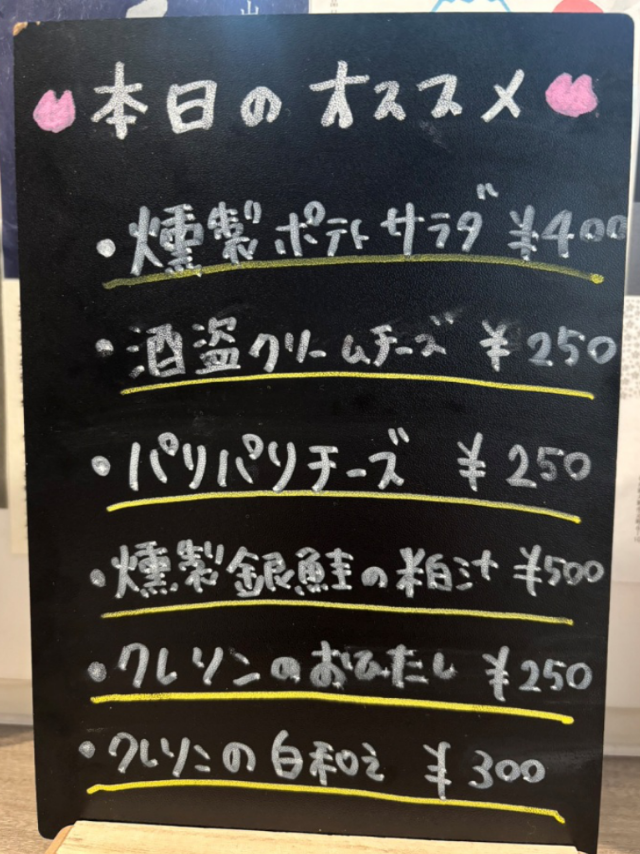 本日のオススメ
・燻製ポテトサラダ ¥400
・酒盗クリームチーズ ¥250
・パリパリチーズ ¥250
・燻製銀鮭の粕汁 ¥500
・クレソンのおひたし ¥250
・クレソンの白和え ¥300